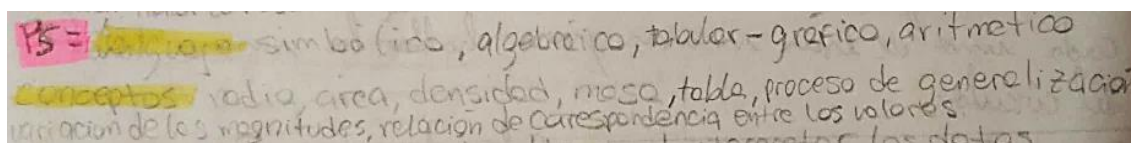 P5 = lenguage simbólico, algebraico, tabular-gráfico, aritmetico
conceptos radio, area, densidad, masa, tabla, proceso de generalización
variacion de las magnitudes, relación de carespondencia entre los valores.
los datos